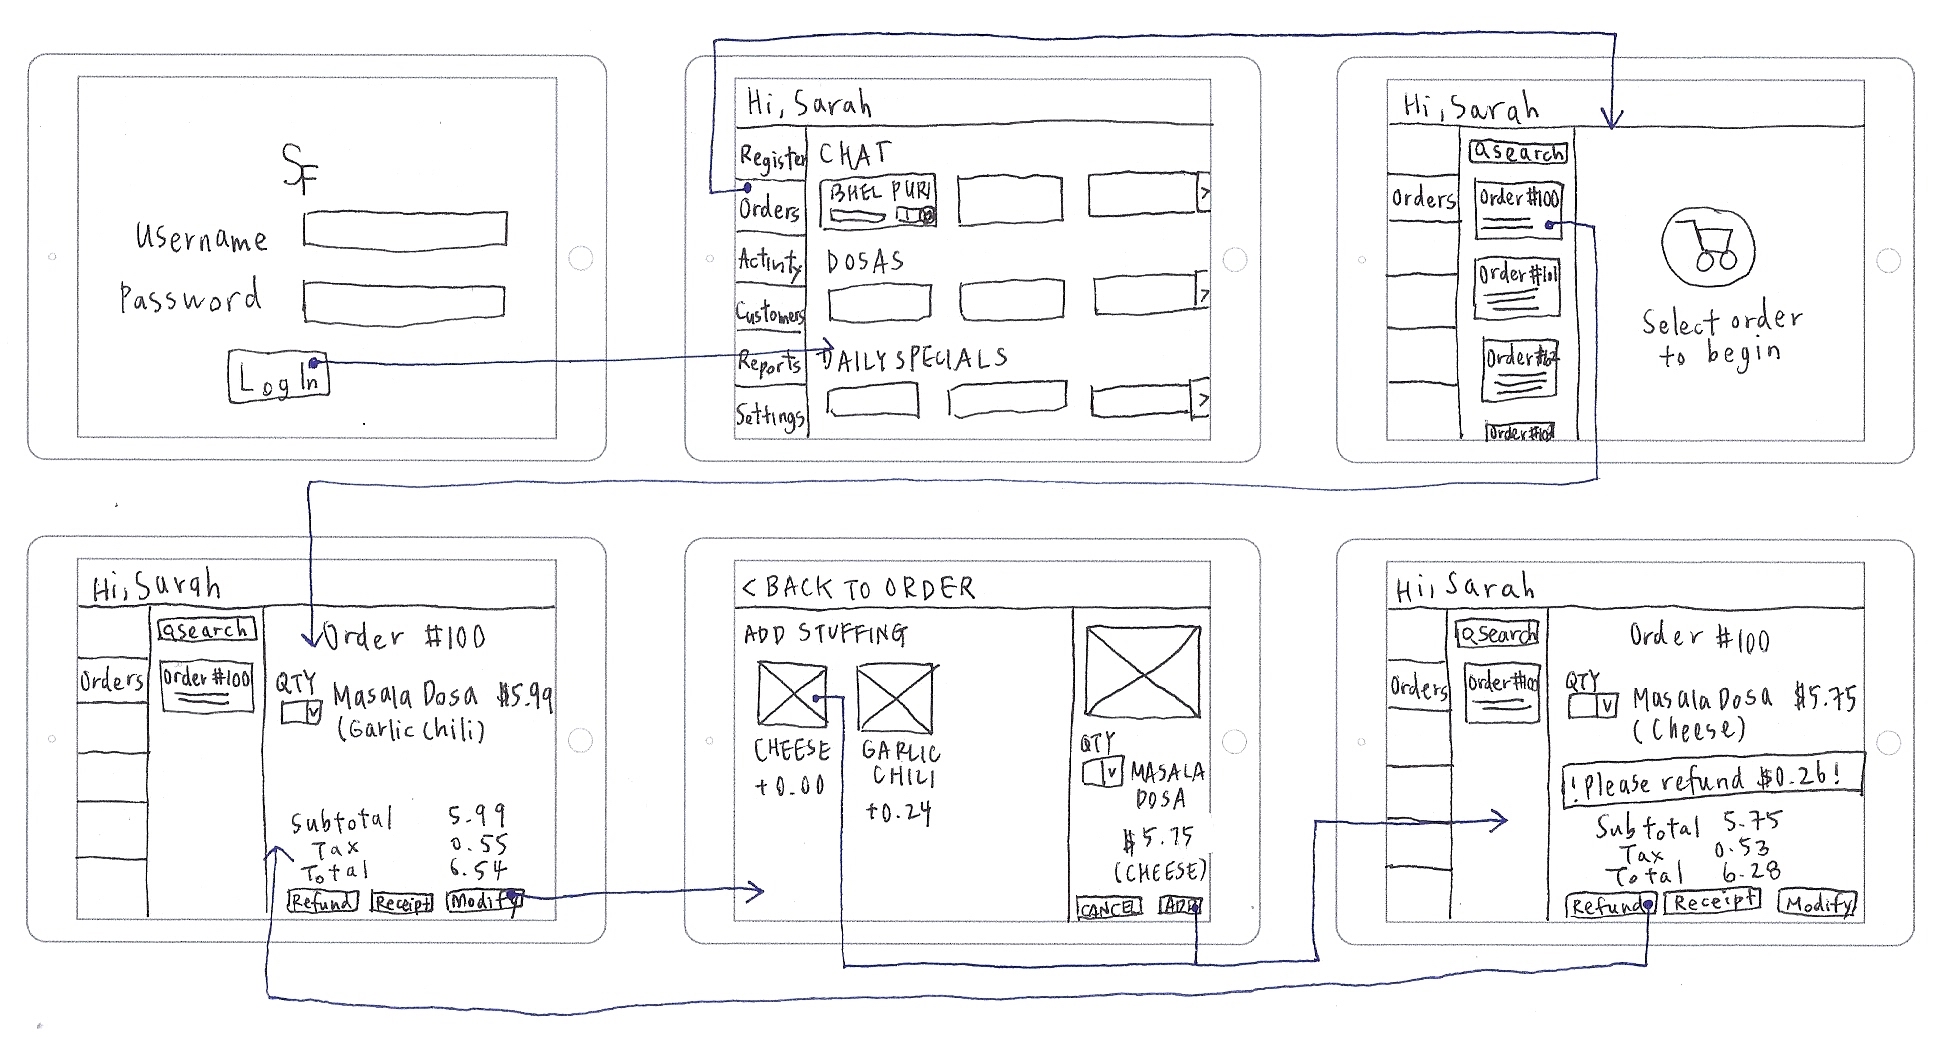 SF
Username
Password
Log In
Hi, Sarah
Register
Orders
Activity
Customers
Reports
Settings
CHAT
BHEL PURI
>
DOSAS
>
DAILY SPECIALS
>
Hi, Sarah
Orders
Search
Order #100
Order #101
Order #102
Select order
to begin
Hi, Sarah
Orders
Search
Order #100
Order #100
QTY
Masala Dosa $5.99
(Garlic Chili)
Subtotal 5.99
Tax 0.55
Total 6.54
Refund Receipt Modify
< BACK TO ORDER
ADD STUFFING
CHEESE
+0.00
GARLIC
CHILI
+0.24
QTY
MASALA
DOSA
$5.75
(CHEESE)
CANCEL ADD
Hi, Sarah
Orders
Search
Order #100
Order #100
QTY
Masala Dosa $5.75
(Cheese)
! Please refund $0.26!
Subtotal 5.75
Tax 0.53
Total 6.28
Refund Receipt Modify